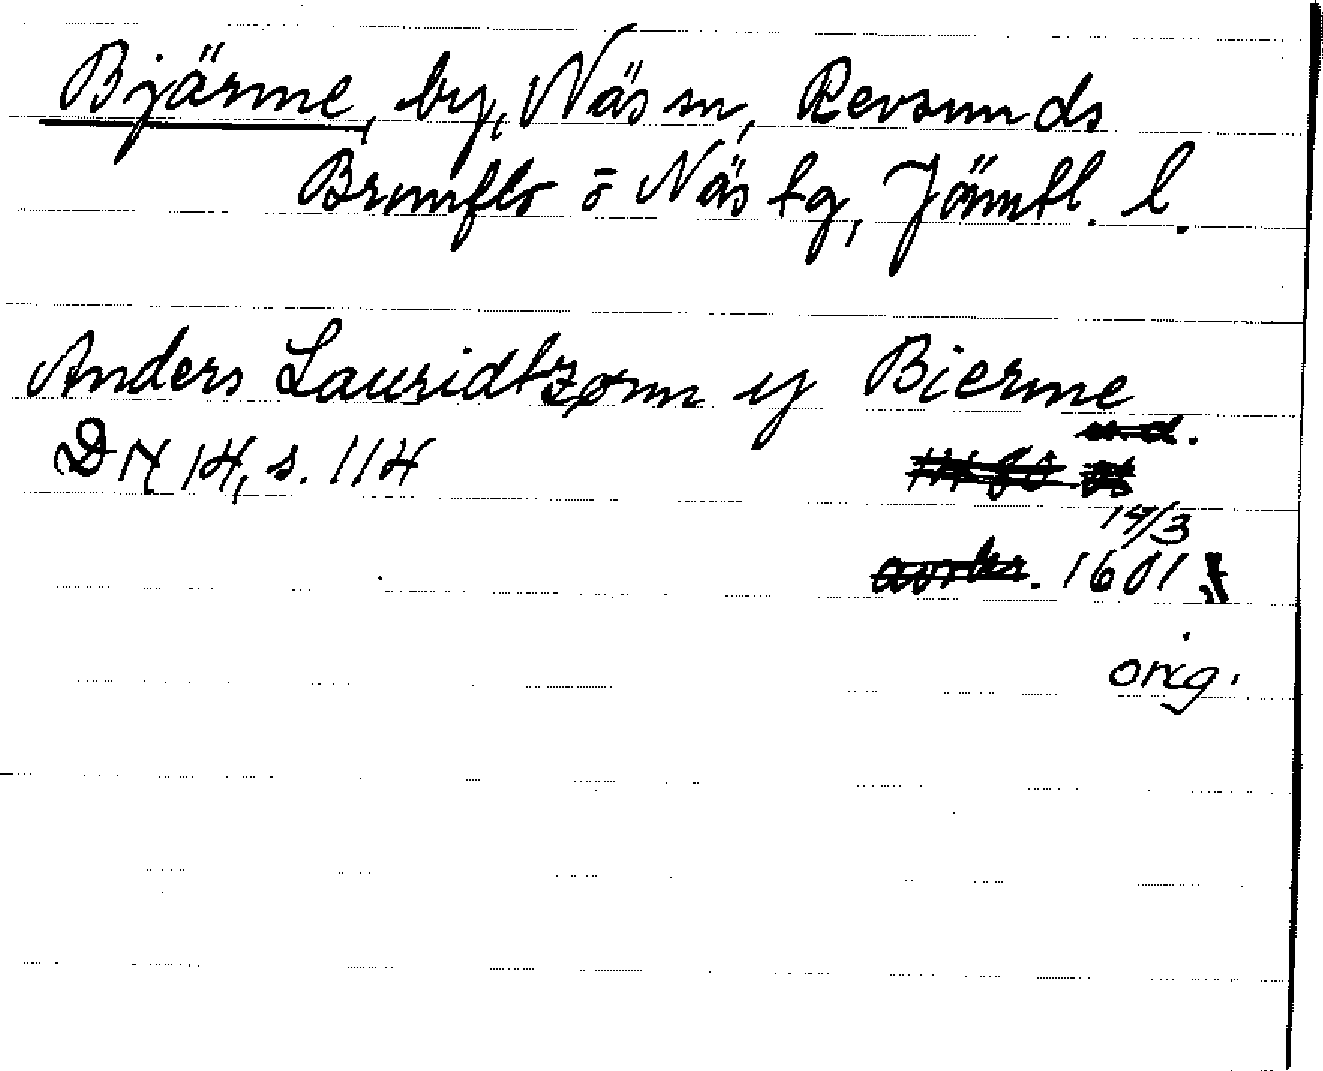 Bjärme, by, Näs sn, Revsunds
Brunflo o Näs tg, Jämtl. l.
Anders Lauridtzønn y Bierme
DN 14, s. 114
14/3
1601
orig.